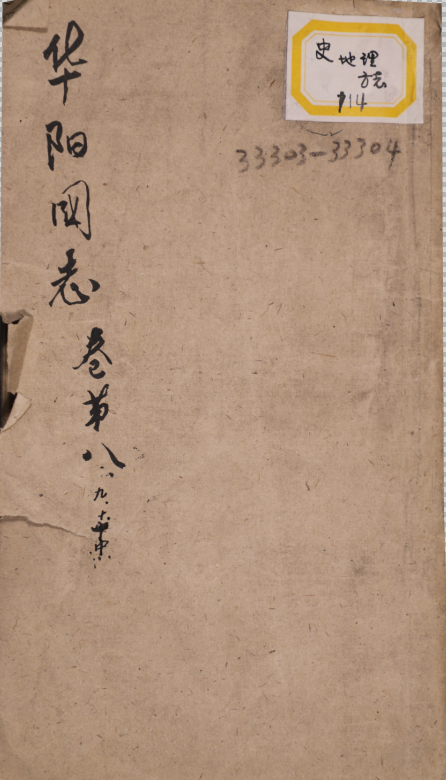 史地理
方志
714
33303-33304
华阳國志 卷第八
九、十